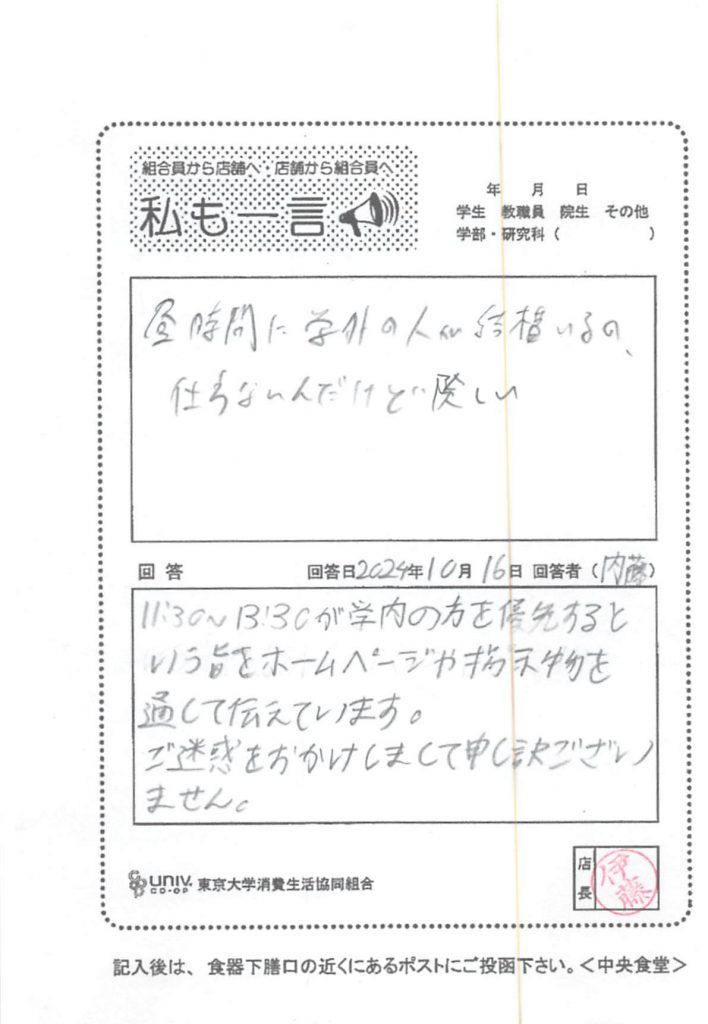 組合員から店舗へ・店舗から組合員へ
私も一言
年 月 日
学生 教職員 院生 その他
学部・研究科（ ）
昼時間に学外の人が結構いるの、
仕方ないんだけど厳しい
回答 回答日2024年10月16日 回答者（内藤）
11:30〜13:30が学内の方を優先すると
いう旨をホームページや掲示物を
通して伝えています。
ご迷惑をおかけしまして申し訳ござい
ません。
UNIV. CO-OP 東京大学消費生活協同組合
店長 伊藤
記入後は、食器下膳口の近くにあるポストにご投函下さい。＜中央食堂＞